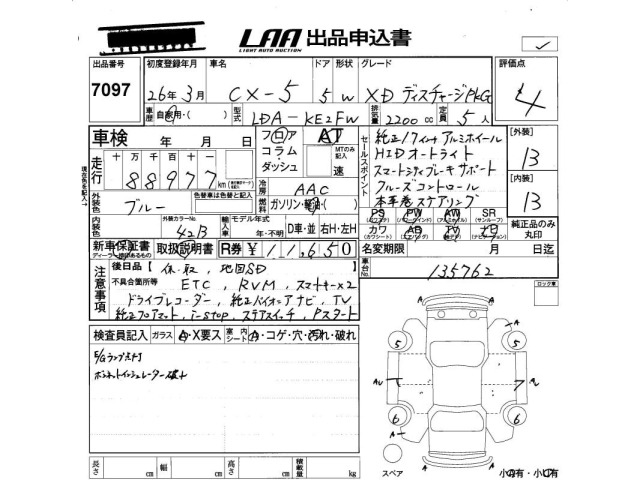 LAA 出品申込書
LIGHT AUTO AUCTION
出品番号 初度登録年月 車名 ドア 形状 グレード 評価点
7097 26年3月 CX-5 5 W XD ディスチャージPKG 4
車歴 自家用・( ) 型式 LDA-KE2FW 排気量 2200cc 定員 5人
車検 年 月 日 フロア AT セールスポイント 純正17インチアルミホイール [外装]
コラム・ MTのみ記入 HIDオートライト 13
走行 十万 万 千 百 十 一 ダッシュ 速 スマートシティブレーキサポート
88977 km クルーズコントロール [内装]
冷房 AAC 本革巻ステアリング 13
外装色 ブルー 色替車は色替と記入 燃料 ガソリン・軽油・( ) PS PW AW SR
外装カラーNo. 42B 輸入車 モデル年式 年・不明 D車・並 右H・左H カワ AB TV ナビ 純正品のみ丸印
新車保証書 取扱説明書 R券 ¥11,650 名変期限 月 日迄
ディーラー印のあるもの
注意事項 後日品( 保・取、地図SD ) 車台No. 135762
不具合箇所等 ETC, RVM, スマートキー×2 ロック車
ドライブレコーダー, 純正バイオニアナビ, TV
純正フロアマット, i-stop, ステアスイッチ, Pスタート
検査員記入 ガラス A・X要ス 室内シート A・コゲ・穴・汚れ・破れ
E/Gランプ点灯
ボンネットインシュレーター破れ
A
5 5
A
AU 7
6 6
A A
スペア 小有・小有
長さ cm 幅 cm 高さ cm 積載量 kg